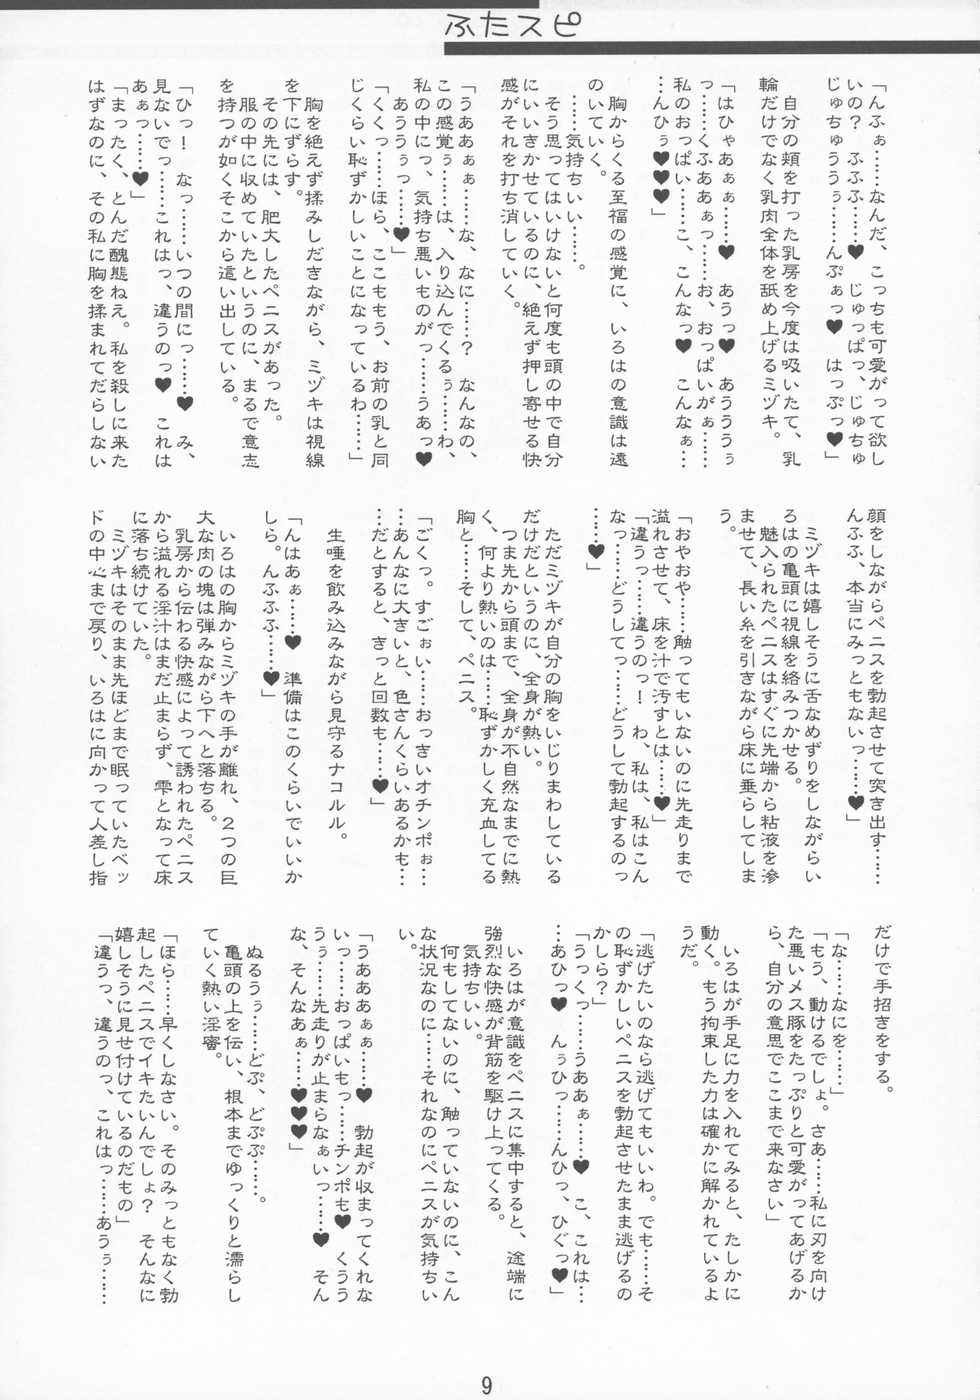 ふたスピ
「んふぁ……なんだ、こっちも可愛がって欲し
いの？　ふふふ……♥　じゅっぱっ、じゅちゅ
じゅちゅううぅ……んぷぁっ♥　はっぷっ♥」
　自分の頬を打った乳房を今度は吸いたて、乳
輪だけでなく乳肉全体を舐め上げるミヅキ。
「はひゃあぁぁ……♥　あうっ♥　あうううぅ
っ……くふああぁっ……お、おっぱいがぁ……
私のおっぱい……こ、こんなっ♥　こんなぁ…
…んひぅ♥♥♥」
　胸からくる至福の感覚に、いろはの意識は遠
のいていく。
　……気持ちいい……。
　そう思ってはいけないと何度も頭の中で自分
にいいきかせているのに、絶えず押し寄せる快
感がそれを打ち消していく。
「うああぁぁ……な、なに……？　なんなの、
この感覚ぅ……は、入り込んでくるぅ……わ、
私の中にっ、気持ち悪いものがっ……うあっ♥
　あううぅっ♥」
「くくっ……ほら、ここももう、お前の乳と同
じくらい恥ずかしいことになっているわ……」
　胸を絶えず揉みしだきながら、ミヅキは視線
を下にずらす。
　その先には、肥大したペニスがあった。
　服の中に収めていたというのに、まるで意志
を持つが如くそこから這い出している。
「ひっ！　なっ……いつの間にっ……♥　み、
見ないでっ……これはっ、違うのっ♥　これは
あぁっ……♥」
「まったく、とんだ醜態ねえ。私を殺しに来た
はずなのに、その私に胸を揉まれてだらしない
顔をしながらペニスを勃起させて突き出す……
んふふ、本当にみっともないっ……♥」
　ミヅキは嬉しそうに舌なめずりをしながらい
ろはの亀頭に視線を絡みつかせる。
　魅入られたペニスはすぐに先端から粘液を滲
ませて、長い糸を引きながら床に垂らしてしま
う。
「おやおや……触ってもいないのに先走りまで
溢れさせて、床を汁で汚すとは……♥」
「違うっ……違うのっ！　わ、私は、私はこん
なっ……どうしてっ……どうして勃起するのっ
……♥」
　ただミヅキが自分の胸をいじりまわしている
だけだというのに、全身が熱い。
　つま先から頭まで、全身が不自然なまでに熱
く、何より熱いのは……恥ずかしく充血してる
胸と……そして、ペニス。
「ごくっ。すごぉい……おっきいオチンポぉ…
…あんなに大きいと、色さんくらいあるかも…
…だとすると、きっと回数も……♥」
　生唾を飲み込みながら見守るナコルル。
「んはあぁ……♥　準備はこのくらいでいいか
しら。んふふふ……♥」
　いろはの胸からミヅキの手が離れ、２つの巨
大な肉の塊は弾みながら下へと落ちる。
　乳房から伝わる快感によって誘われたペニス
から溢れる淫汁はまだ止まらず、雫となって床
に落ち続けていた。
　ミヅキはそのまま先ほどまで眠っていたベッ
ドの中心まで戻り、いろはに向かって人差し指
だけで手招きをする。
「な……なにを……」
「もう、動けるでしょ。さあ……私に刃を向け
た悪いメス豚をたっぷりと可愛がってあげるか
ら、自分の意思でここまで来なさい」
　いろはが手足に力を入れてみると、たしかに
動く。もう拘束した力は確かに解かれているよ
うだ。
「逃げたいのなら逃げてもいいわ。でも……そ
の恥ずかしいペニスを勃起させたまま逃げるの
かしら？」
「うっくっ……うああぁ……♥　こ、これは…
…あひっ♥　んぅひっ……んひっ、ひぐっ♥」
　いろはが意識をペニスに集中すると、途端に
強烈な快感が背筋を駆け上ってくる。
　気持ちいい。
　何もしてないのに、触っていないのに、こん
な状況なのに……それなのにペニスが気持ちい
い。
「うあああぁぁ……♥　勃起が収まってくれな
いっ……おっぱいもっ……チンポも♥　くうう
うぅ……先走りが止まらなぁいっ……♥　そん
な、そんなあぁ……♥♥♥」
　ぬるうぅ……どぷ、どぷぷ……。
　亀頭の上を伝い、根本までゆっくりと濡らし
ていく熱い淫蜜。
「ほら……早くしなさい。そのみっともなく勃
起したペニスでイキたいんでしょ？　そんなに
嬉しそうに見せ付けているのだもの」
「違うっ、違うのっ、これはっ……あうぅ……
9